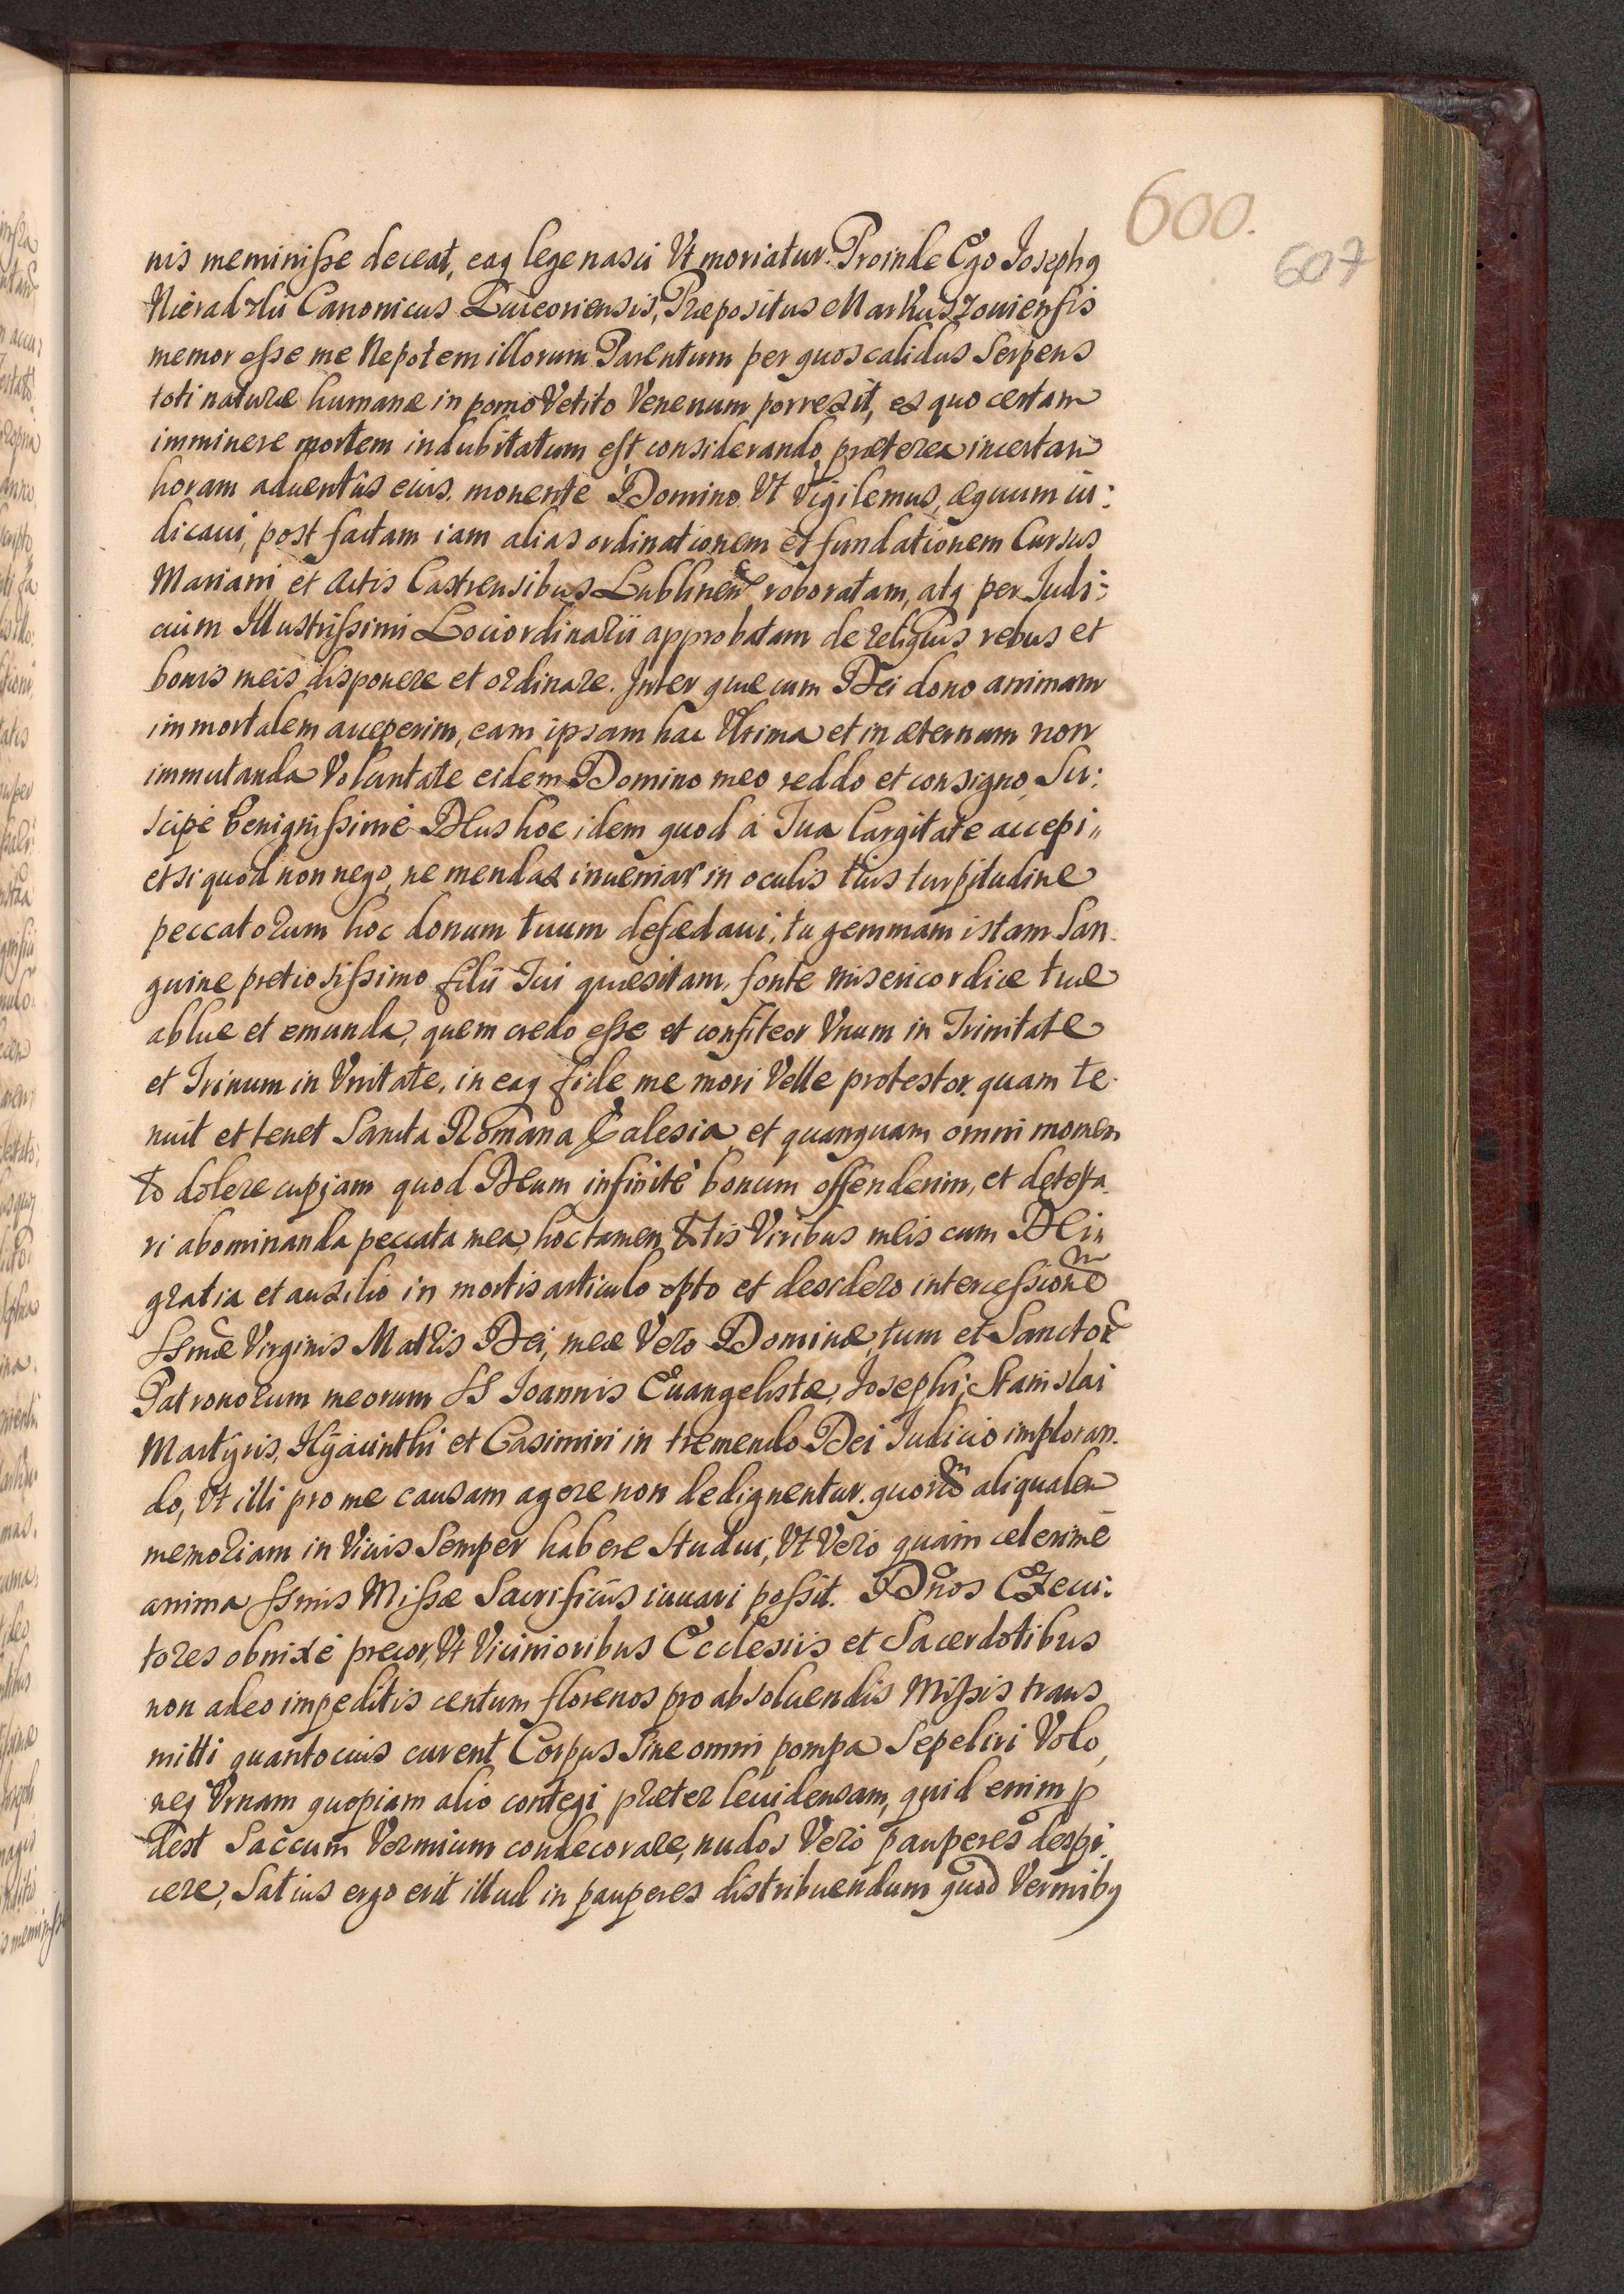 600.
607
nis meminisse deceat, eaq legenasci Vt moriatur. Proinde Ego Josephq
Nieradzki Canonicus Luceoriensis, Præpositus Markuszouiensis
memor esse me Nepotem illorum Parentum per quos calidus Serpens
toti naturæ humanæ in pomo Vetito Venenum porrexit, ex quo certam
imminere mortem indubitatum est, considerando præterea incertam
horam aduentûs eius, monente Domino Vt Vigilemus, æquum iu:
dicaui, post factam iam alias ordinationem et fundationem Cursus
Mariani, et Actis Castrensibus Lublinen roboratam, atq per Judi:
cium Illustrissimi Lociordinarii approbatam de reliquis rebus et
bonis meis disponere et ordinare. Inter quæ cum Dei dono animam
immortalem acceperim, eam ipsam hac Vltima et in æternum non
immutanda Voluntate eidem Domino meo reddo et consigno, Su:
scipe benignissimè DEus hoc idem quod à Tua largitate accepi,,
etsi quod non nego, ne mendax inueniar in oculis tuis turpitudine
peccatorum hoc donum tuum defædaui, tu gemmam istam San.
guine pretiosissimo filii Tui quæsitam, fonte misericordiæ tuæ
ablue et emunda, quem credo esse et confiteor Vnum in Trinitate
et Trinum in Vnitate, in eaq fide me mori Velle protestor. quam te.
nuit et tenet Sancta Romana Ecclesia, et quanquam omni momen
to dolere cupiam quod DEum infinitè bonum offenderim, et detesta.
ri abominanda peccata mea, hoc tamen totis Viribus meis cum DEi
gratia et auxilio in mortis articulo opto et desidero intercessione
SSmæ Virginis Matris Dei, meæ Vero Dominæ, tum et Sanctor
Patronorum meorum SS Joannis Euangelistæ, Josephi, Stanislai
Martyris, Hyacinthi et Casimiri in tremendo Dei Judicio imploran.
do, Vt illi pro me causam agere non dedignentur. quorum aliqualem
memoriam in Viuis Semper habere Studui, Vt Vero quàm celerimè
anima SSmis Missæ Sacrificiis iuuari possit. Dnos Execu:
tores obnixè precor, Vt Vicinioribus Ecclesiis et Sacerdotibus
non adeo impeditis centum florenos pro absoluendis Missis trans
mitti quantocius curent Corpus Sine omni pompa Sepeliri Volo,
neq Vrnam quopiam alio contegi præter leuidensam, quid enim p
dest Saccum Vermium condecorare, nudos Verò pauperes despi.
cere, Satius ergo erit illud in pauperes distribuendum quod Vermibq